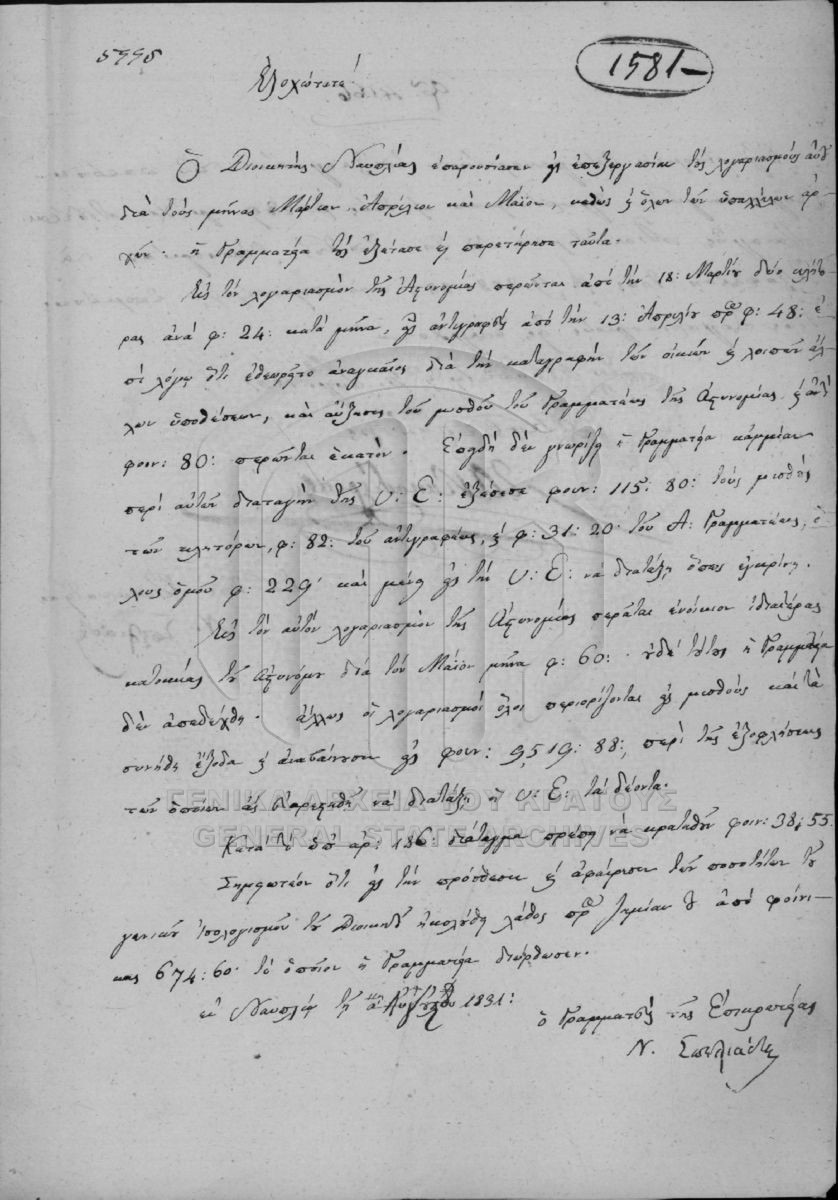 5995
1581-
Ἐξοχώτατε!
Ὁ Διοικητὴς Ναυπλίας ἐπαρουσίασεν εἰς ἐπεξεργασίαν τοὺς λογαριασμοὺς αὐτοῦ
διὰ τοὺς μῆνας Μάρτιον, Ἀπρίλιον καὶ Μάϊον, καθὼς καὶ ὅλων τῶν ὑπαλλήλων ἀρ-
χῶν· ἡ Γραμματεία τοὺς ἐξέτασε καὶ παρετήρησε ταῦτα.
Εἰς τὸν λογαριασμὸν τῆς Ἀστυνομίας περῶνται ἀπὸ τὴν 18: Μαρτίου δύο κλήτο-
ρας ἀνὰ φ: 24: κατὰ μῆνα, εἷς ἀντιγραφεὺς ἀπὸ τὴν 13: Ἀπριλίου πρὸς φ: 48: ἐ-
πὶ λόγῳ ὅτι ἐθεωρήθη ἀναγκαῖος διὰ τὴν καταγραφὴν τῶν οἰκιῶν καὶ λοιπῶν ἄλ-
λων ὑποθέσεων, καὶ αὔξησις τοῦ μισθοῦ τοῦ Γραμματέως τῆς Ἀστυνομίας, καὶ ἀντὶ
φοιν: 80: περῶνται ἑκατόν. Ἐπειδὴ δὲν γνωρίζει ἡ Γραμματεία κἀμμίαν
περὶ αὐτῶν διαταγὴν τῆς Υ: Ε: ἐξέπεσε φοιν: 115: 80: τοὺς μισθοὺς
τῶν κλητόρων, φ: 82: τοῦ ἀντιγραφέως, καὶ φ: 31: 20: τοῦ Α: Γραμματέως, ὅ-
λους ὁμοῦ φ: 229: καὶ μένει εἰς τὴν Υ: Ε: νὰ διατάξῃ ὅπως ἐγκρίνῃ.
Εἰς τὸν αὐτὸν λογαριασμὸν τῆς Ἀστυνομίας περᾶται ἐνοίκιον ἰδιαιτέρας
κατοικίας τοῦ Ἀστυνόμου διὰ τὸν Μάϊον μῆνα φ: 60: οὐδὲ τοῦτο ἡ Γραμματεία
δὲν ἀπεδέχθη. ἄλλως οἱ λογαριασμοὶ ὅλοι περιορίζονται εἰς μισθοὺς καὶ τὰ
συνήθη ἔξοδα καὶ ἀναβαίνουν εἰς φοιν: 9519: 88:, περὶ τῆς ἐξοφλήσεως
τῶν ὁποίων ἂς εὐαρεστηθῇ νὰ διατάξῃ ἡ Υ: Ε: τὰ δέοντα.
Κατὰ τὸ ὑπ' ἀρ: 186: διάταγμα πρέπει νὰ κρατηθοῦν φοιν: 38; 55.
Σημειωτέον ὅτι εἰς τὴν πρόσθεσιν καὶ ἀφαίρεσιν τῶν ποσοτήτων τοῦ
γενικοῦ ἰσολογισμοῦ τοῦ Διοικητοῦ ἠκολούθη λάθος πρὸς ζημίαν του ἀπὸ φοίνι-
κας 674: 60: τὸ ὁποῖον ἡ Γραμματεία διώρθωσεν.
ἐν Ναυπλίῳ τῇ α Αὐγούστου 1831:
ὁ Γραμματεὺς τῆς Ἐπικρατείας
Ν. Σπηλιάδης
ΓΕΝΙΚΑ ΑΡΧΕΙΑ ΤΟΥ ΚΡΑΤΟΥΣ
GENERAL STATE ARCHIVES